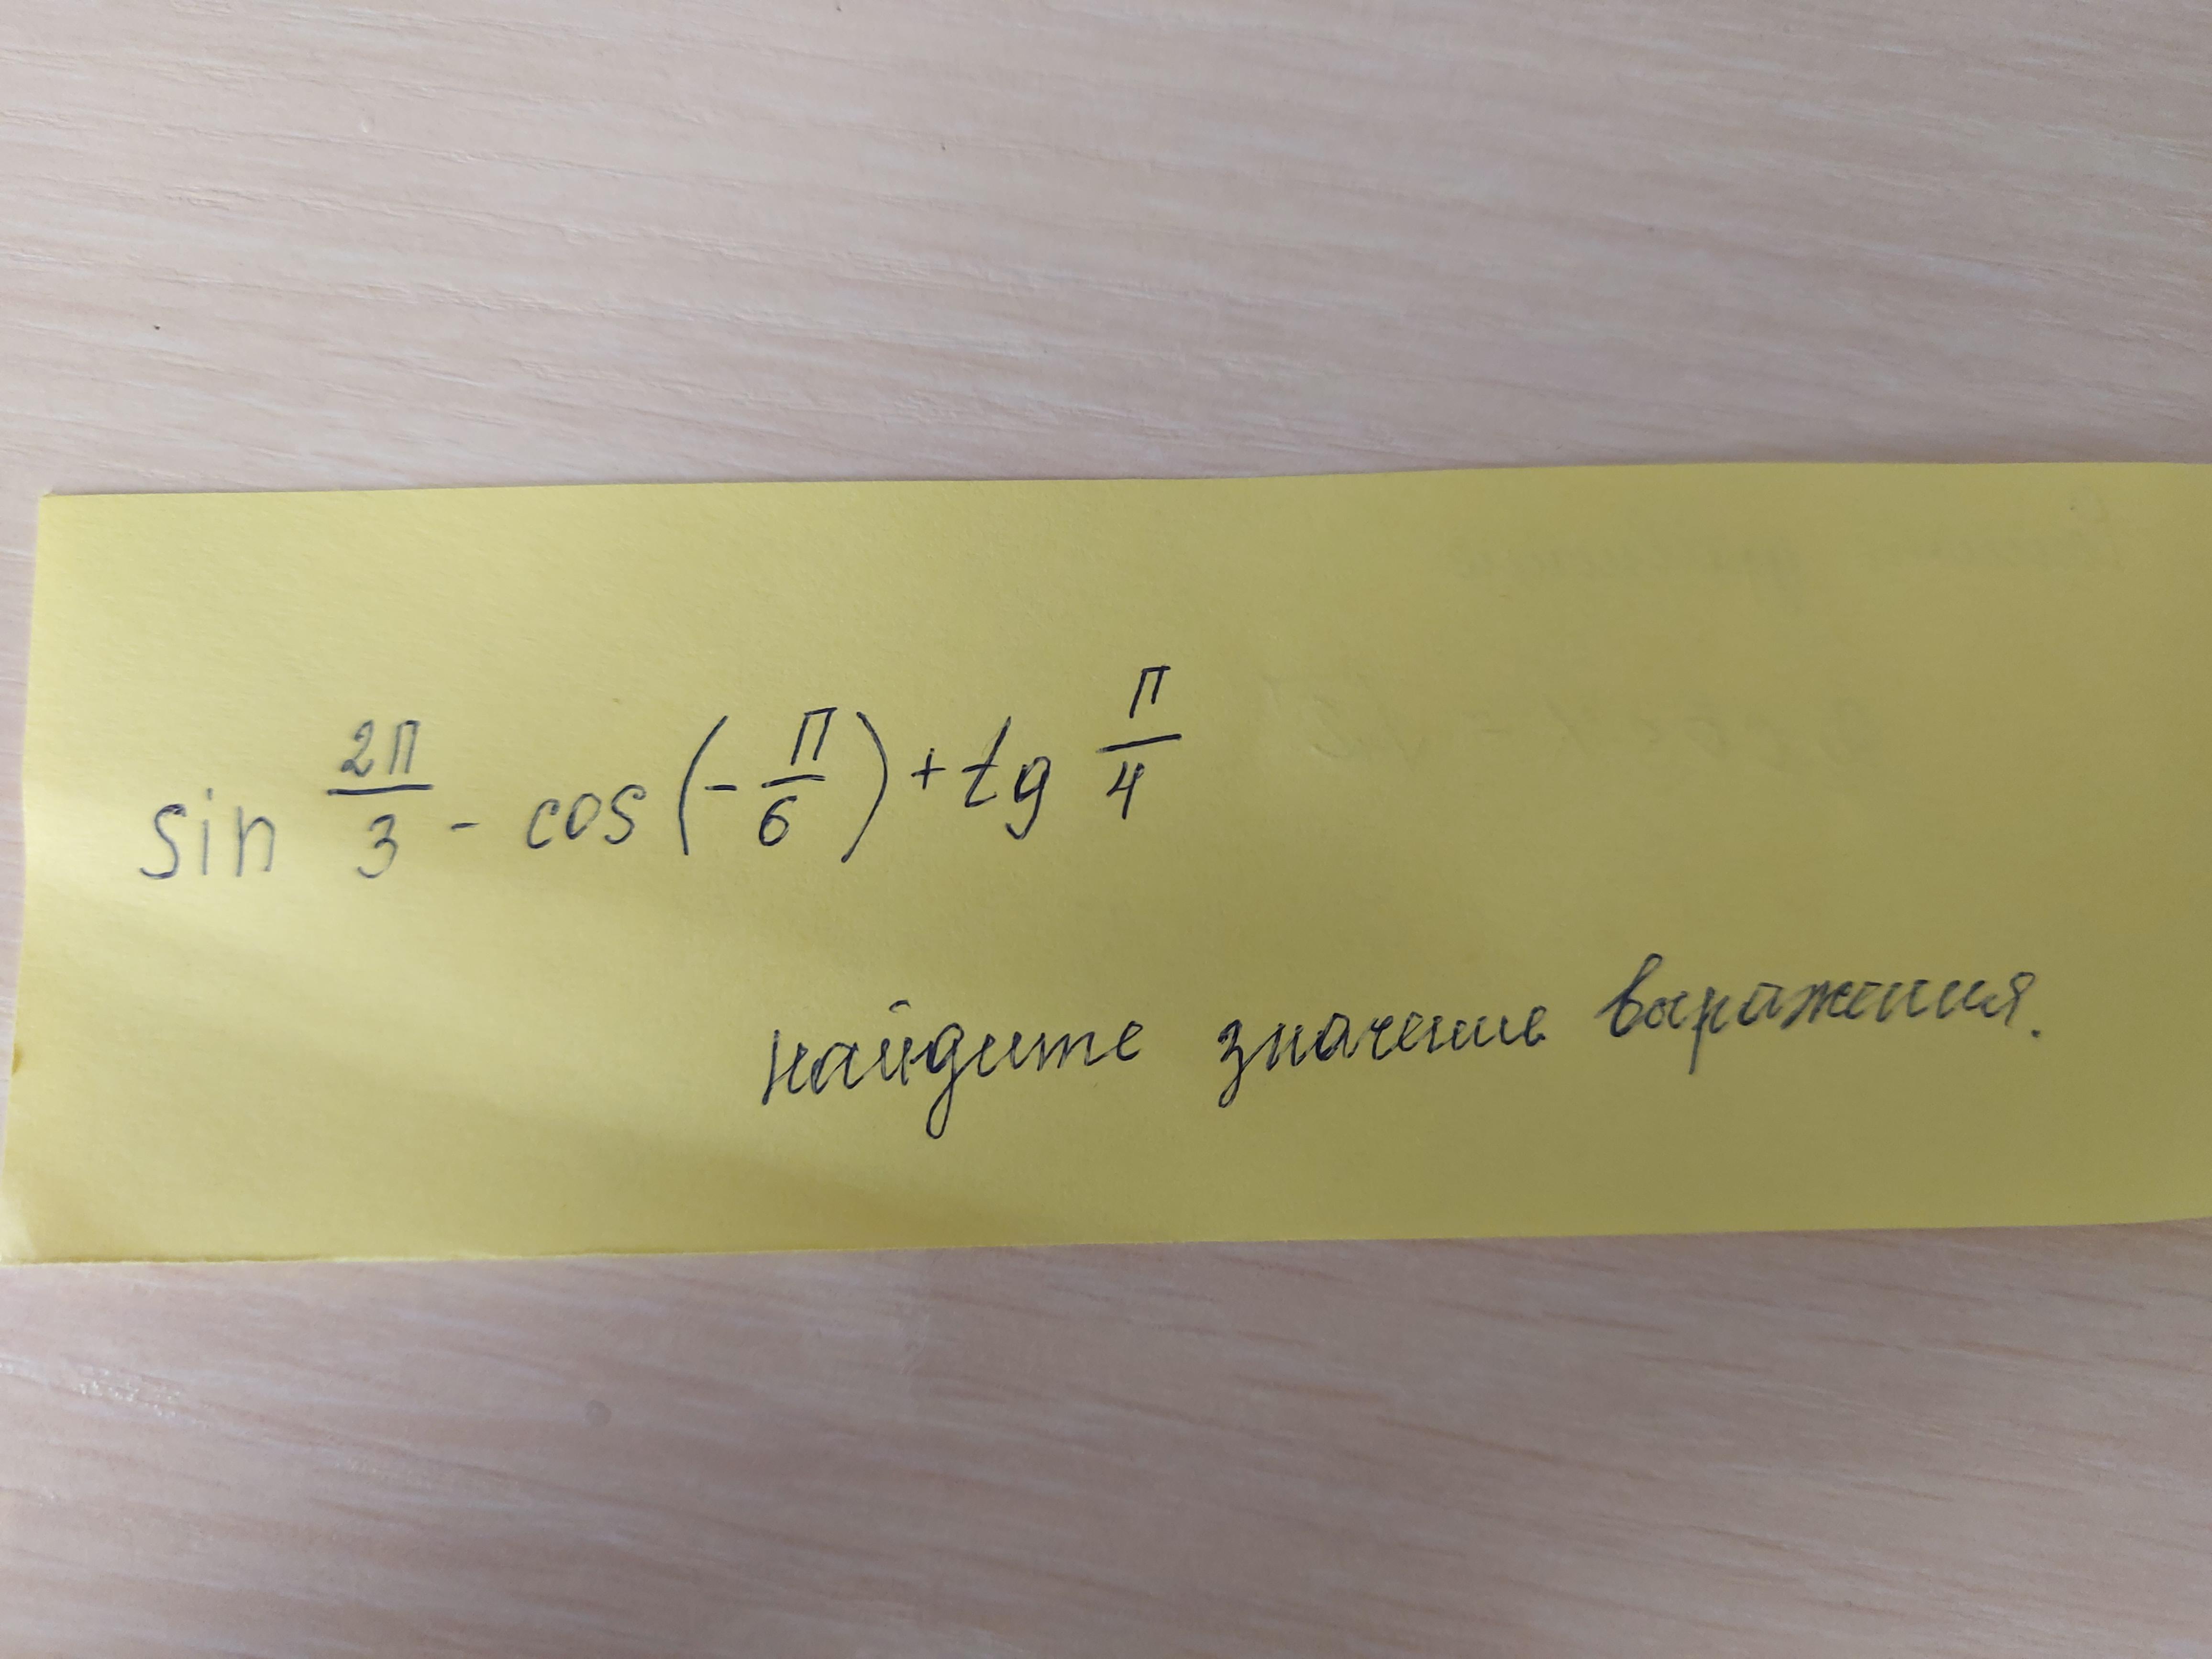 sin 2π/3 - cos(-π/6) + tg π/4
найдите значение выражения.